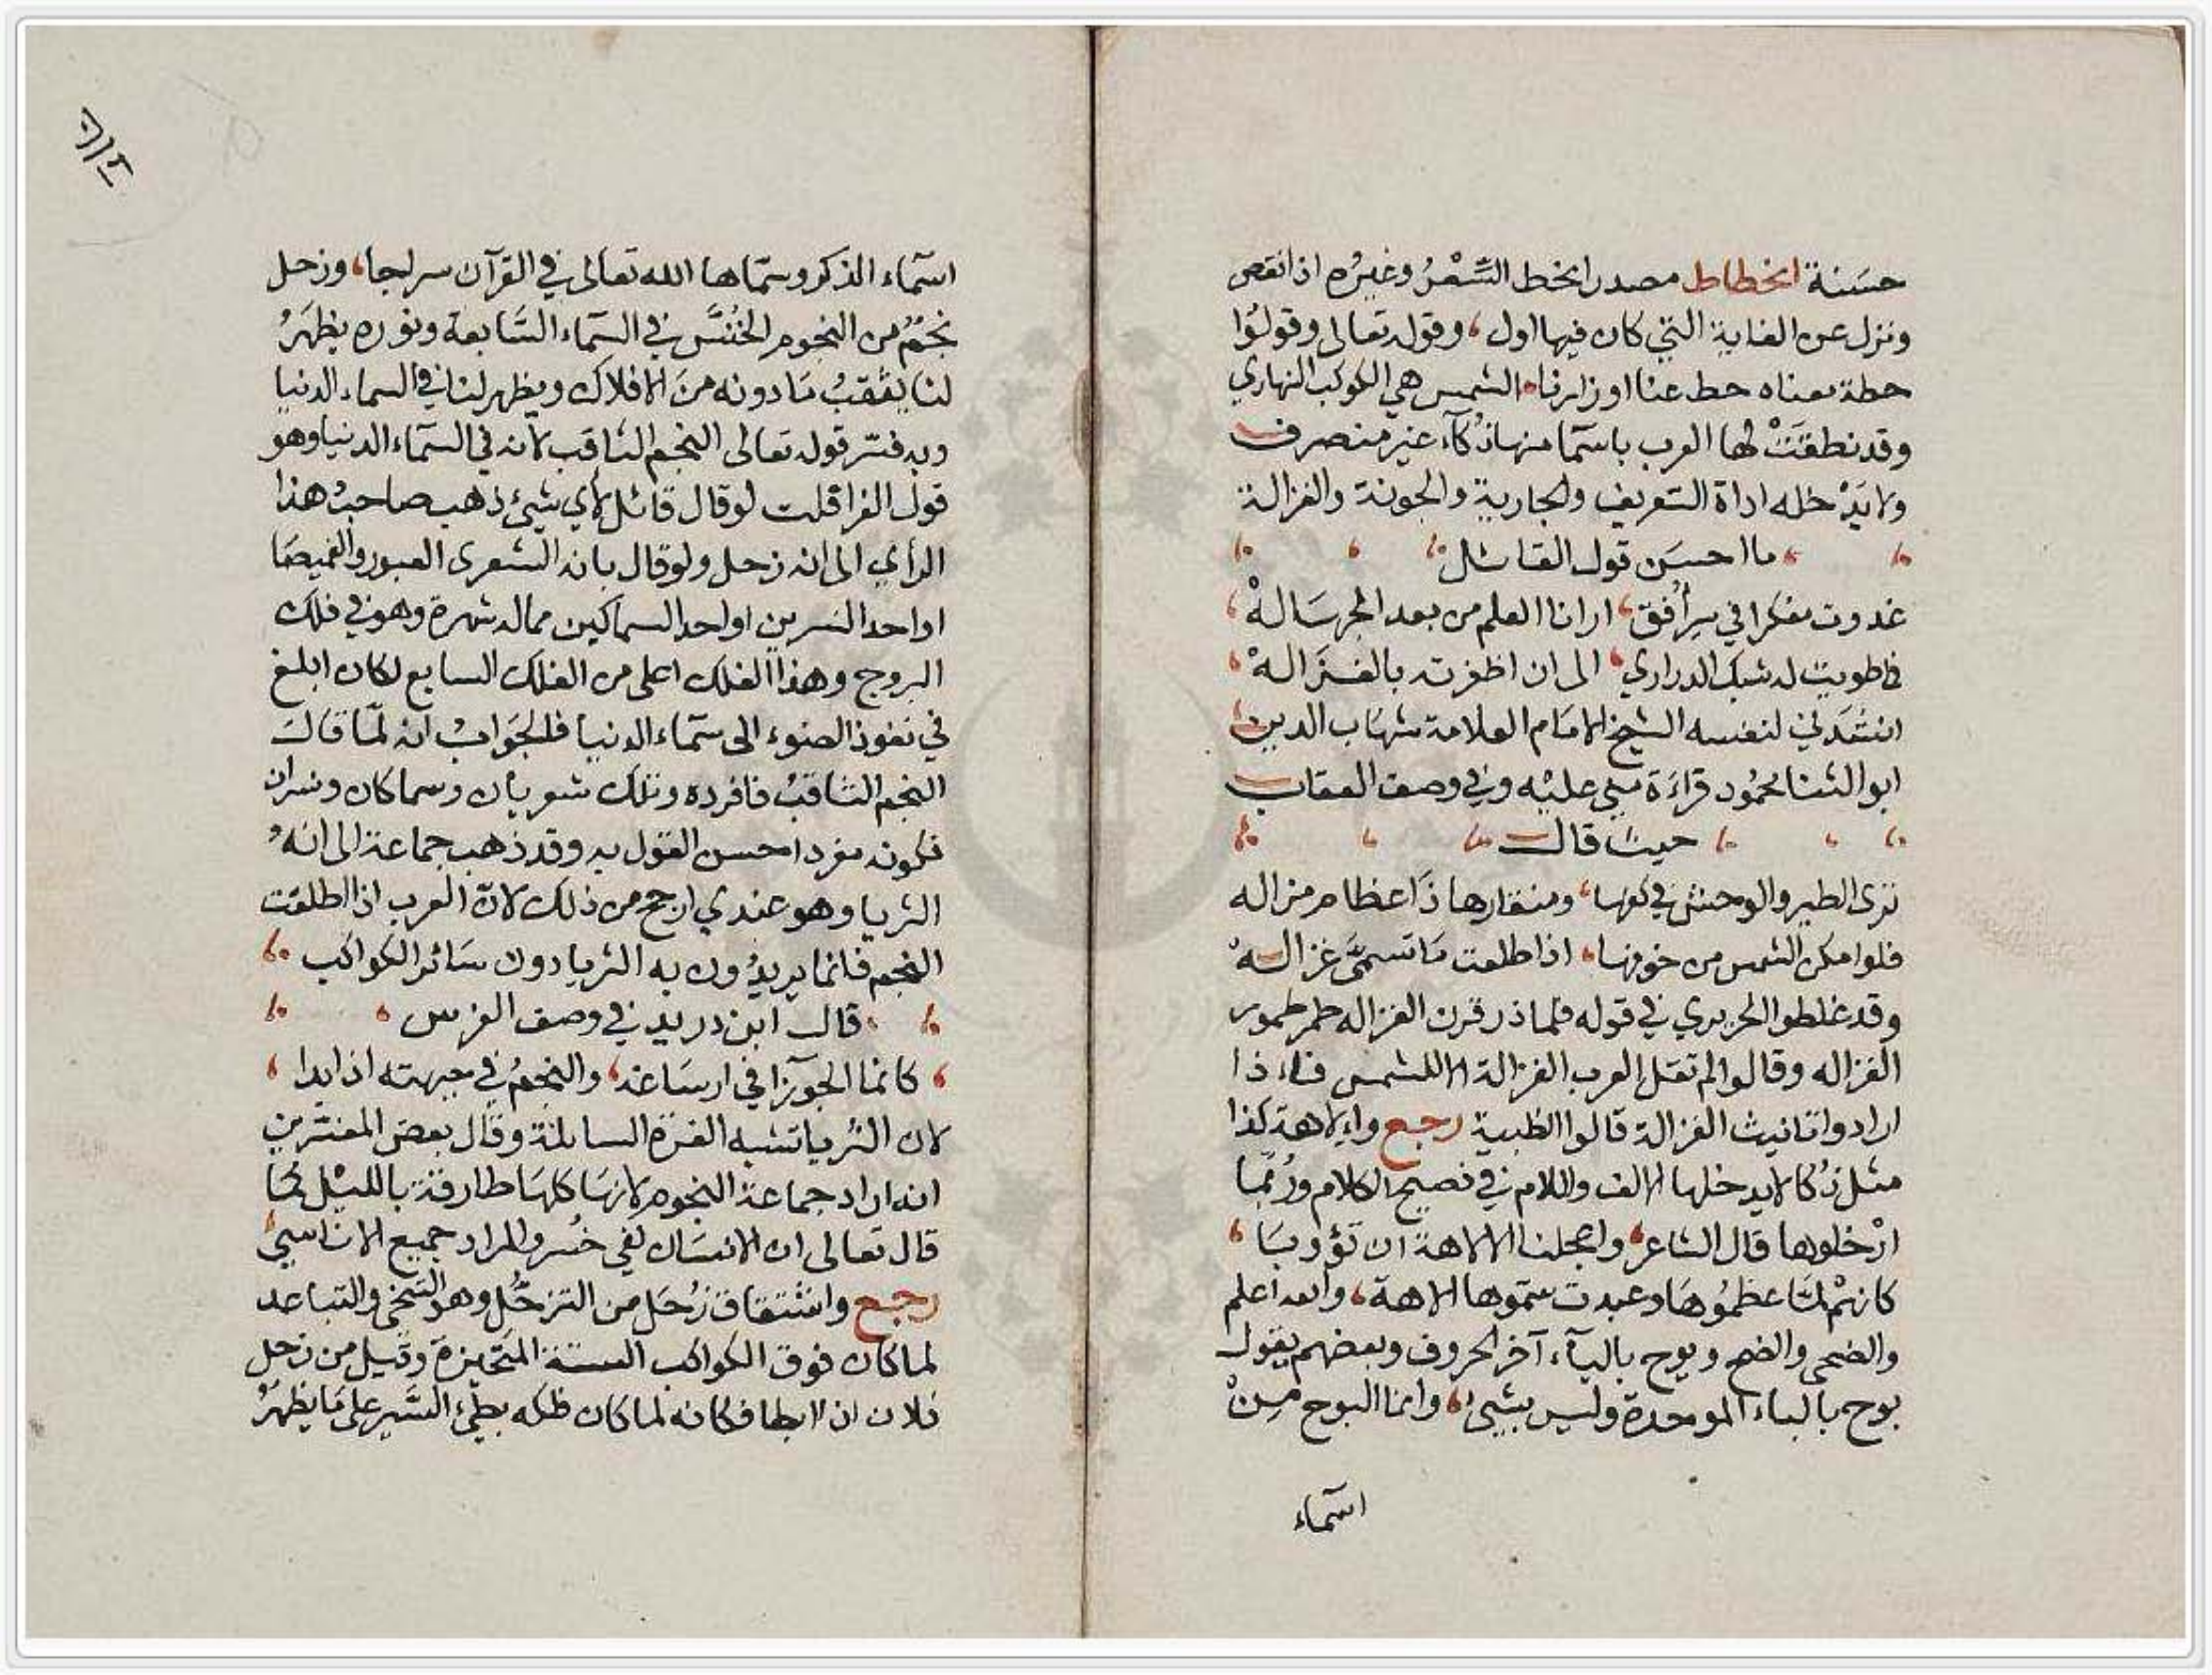 حسَنة انحطاط مصدر انحط السِّعْرُ وغيرُه اذا نقص
ونزل عن الغاية التي كان فيها اول، وقوله تعالى وقولوُا
حطة معناه حط عنا اوزارنا، الشمس هي الكوكب النهاري
وقد نطقَتْ لها العرب باسمآ منها ذُكآء غير منصرف
ولا يَدْخله اداة التعريف والجارية والجونة والغزالة
ما احسَن قول القائل
غدوت مفكرا في سِر أُفق، ارانا العلم من بعد الجهَالهْ
فما طويت له شبك الدراري، الى ان اظفرته بالغَزالهْ
انشَدَني لنفسه الشيخ الامَام العلامة شهَاب الدين
ابو الثنا محمُود قراءَة مني عليْه وفي وصف العقاب
حيث قال
ترى الطير والوحش في كفها، ومنقارها ذا عظام مزاله
فلو امكن الشمس من خوفها، اذا طلعت مَا تسمىَّ غزالهْ
وقد غلطوا الحريري في قوله فلما ذر قرن الغزاله طمر طمور
الغزاله وقالوا لم تقل العرب الغزالة الا للشمس فاء ذا
ارادوا تانيث الغزالة قالوا الظبية رجع واءِلاهة كذا
مثل ذُكا لا يدخلها الالف واللام في فصيح الكلام ورُبمَّا
ادْخلوها قال الشاعر، واعجلنا الالاهة ان تؤوبَا،
كانهْم لمَّا عظمُوهَا وعبدت سَموها الاهة، والله اعلم
والضحى والضح ويوح باليآء آخر الحروف وبعضهم يقول
بوح بالباء الموحدة وليس بشيء، وانما البوح مِنْ
اسمآء
اسمآء الذكر وسمّاها الله تعالى في القرآن سراجا، وزحل
نجمٌ من النجوم الخُنَّس في السمآء السَّابعة ونوره يظهَرُ
لنا يثقبُ مَا دونه منَ الافلاك ويظهر لنا في السماء الدنيا
وبه فسّر قوله تعالى النجم الثاقب لانه في السمآء الدنيا وهو
قول الفرا قلت لو قال قائل لاي شيء ذهب صاحبُ هذا
الرأي الى انه زحل ولو قال بانه الشعرى العبور والغميصَا
او احد النسرين او احد السماكين مما له شهرة وهو في فلك
البروج وهذا الفلك اعلى من الفلك السابع لكان ابلغ
في نفوذ الضوء الى سمآء الدنيا فالجوَابُ انه لمّا قالَ
النجم الثاقبُ فافرده وتلك شعريان وسماكان ونسران
فكونه مفردا حسن القول به وقد ذهب جماعة الى انهُ
الثريا وهو عندي ارجح من ذلك لانّ العرب اذا اطلقت
النجم فانما يريدُون به الثريا دون سَائر الكواكب
قال ابن دريد في وصف الفرس
كانما الجوزآ في ارسَاغه، والنجمُ في جبهته اذا بدا،
لان الثريا تشبه الغرة السائلة وقال بعض المفسّرين
انه اراد جماعة النجوم لانهَا كلهَا طارقة بالليْل كمَا
قال تعالى ان الانسَان لفي خُسر والمراد جميع الاناسيّ
رجع واشتقاق زُحَل من التزحّل وهو التنحّي والتباعد
لما كان فوق الكواكب الستة المتَحيزة وقيل من زحل
فلان اذا ابطا فكانه لما كان فلكه بطيء السَّير على مَا يظهَرُ